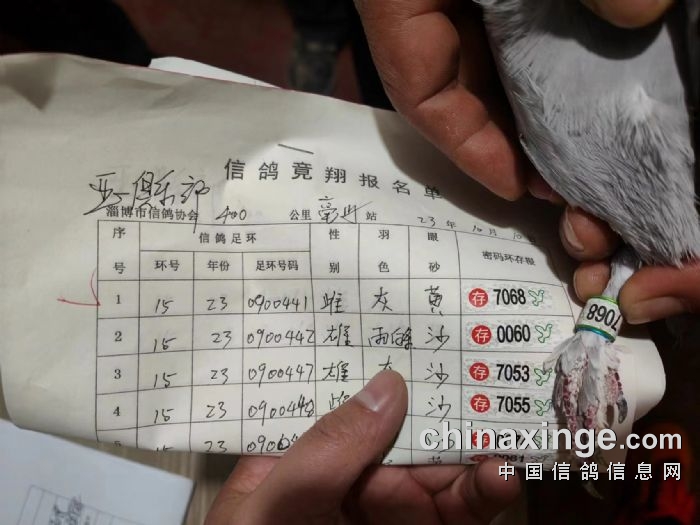 信鸽竞翔报名单
亚一俱乐部
淄博市信鸽协会 400 公里 亳州 站 23 年 10 月 10 日
序号 信鸽足环 性别 羽色 眼砂 密码环存根
环号 年份 足环号码
1 15 23 0900441 雌 灰 黄 存 7068
2 15 23 0900442 雄 雨白条 沙 存 0060
3 15 23 0900447 雄 灰 沙 存 7053
4 15 23 0900448 雌 沙 存 7055
7068
chinaxinge.com
中国信鸽信息网